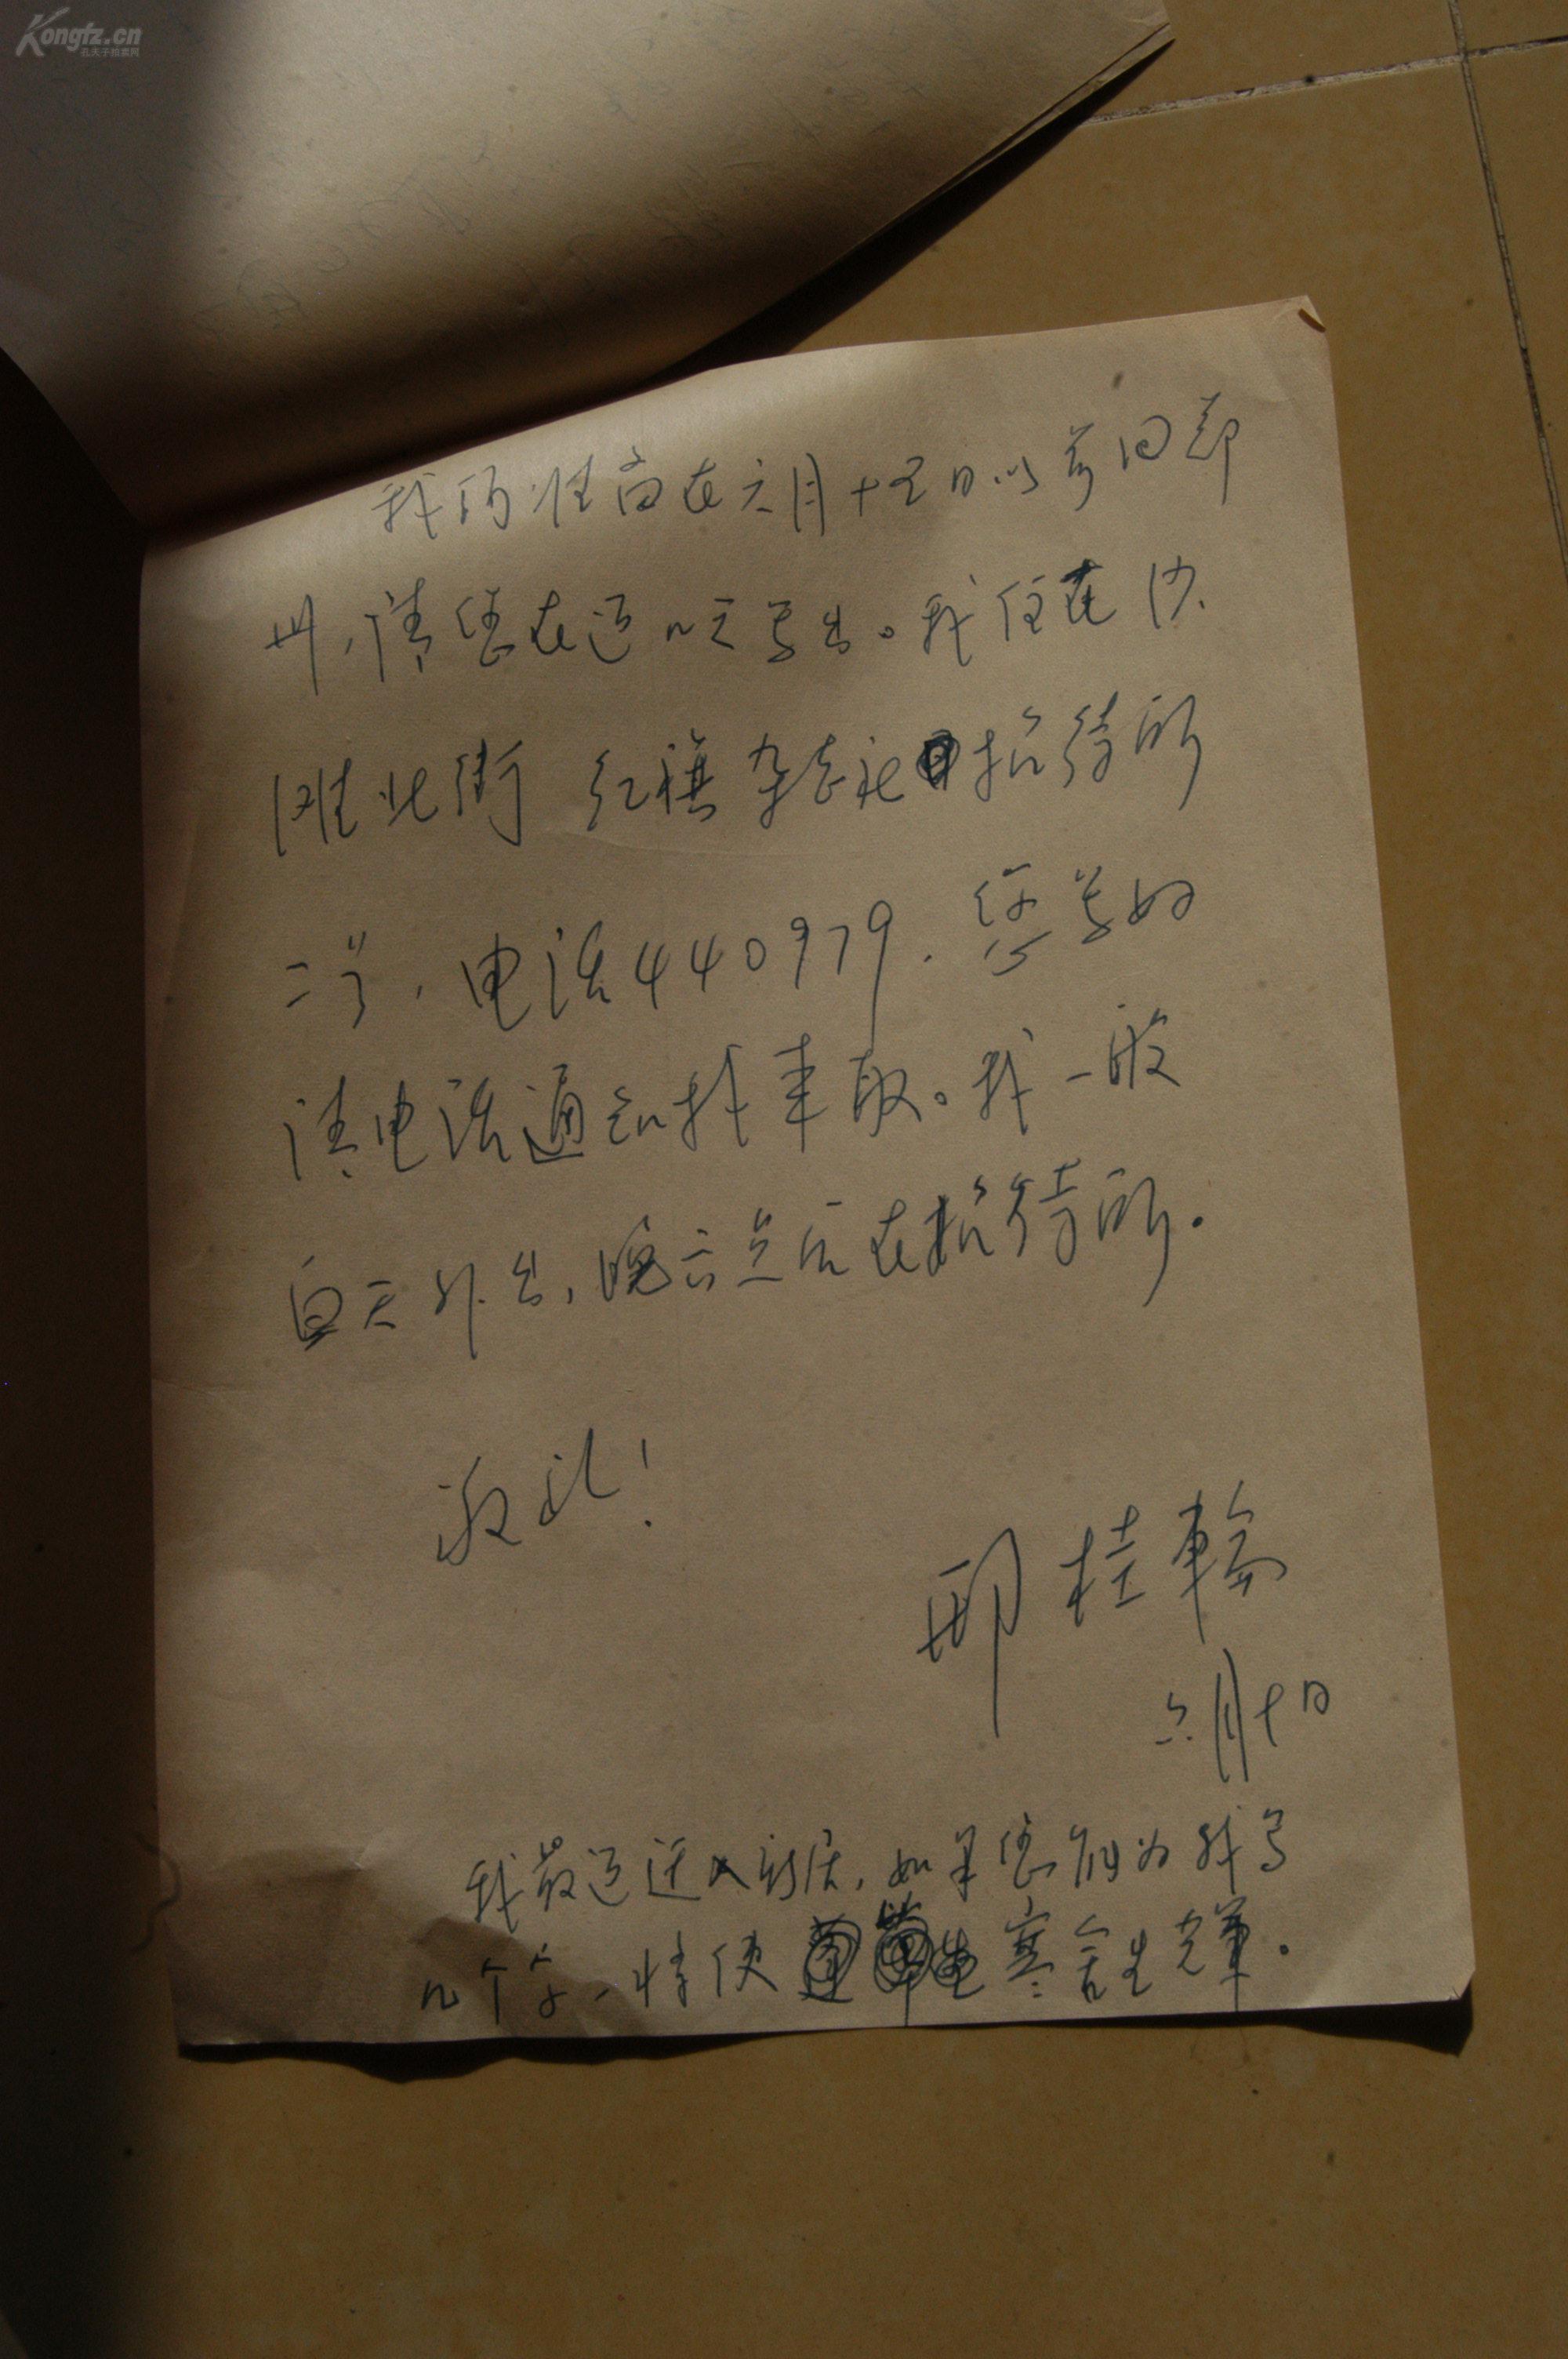 Kongfz.cn
孔夫子拍卖网
我的 在六月十五日以前回郑
州，请您在近几天写出。我住在沙
滩北街 红旗杂志社招待所
二号，电话440979。您写好
请电话通知我来取。我一般
白天外出，晚六点后在招待所。
敬礼！
邢桂轮
六月十日
我最近迁入新居，如果您能为我写
几个字，将使寒舍生光辉。